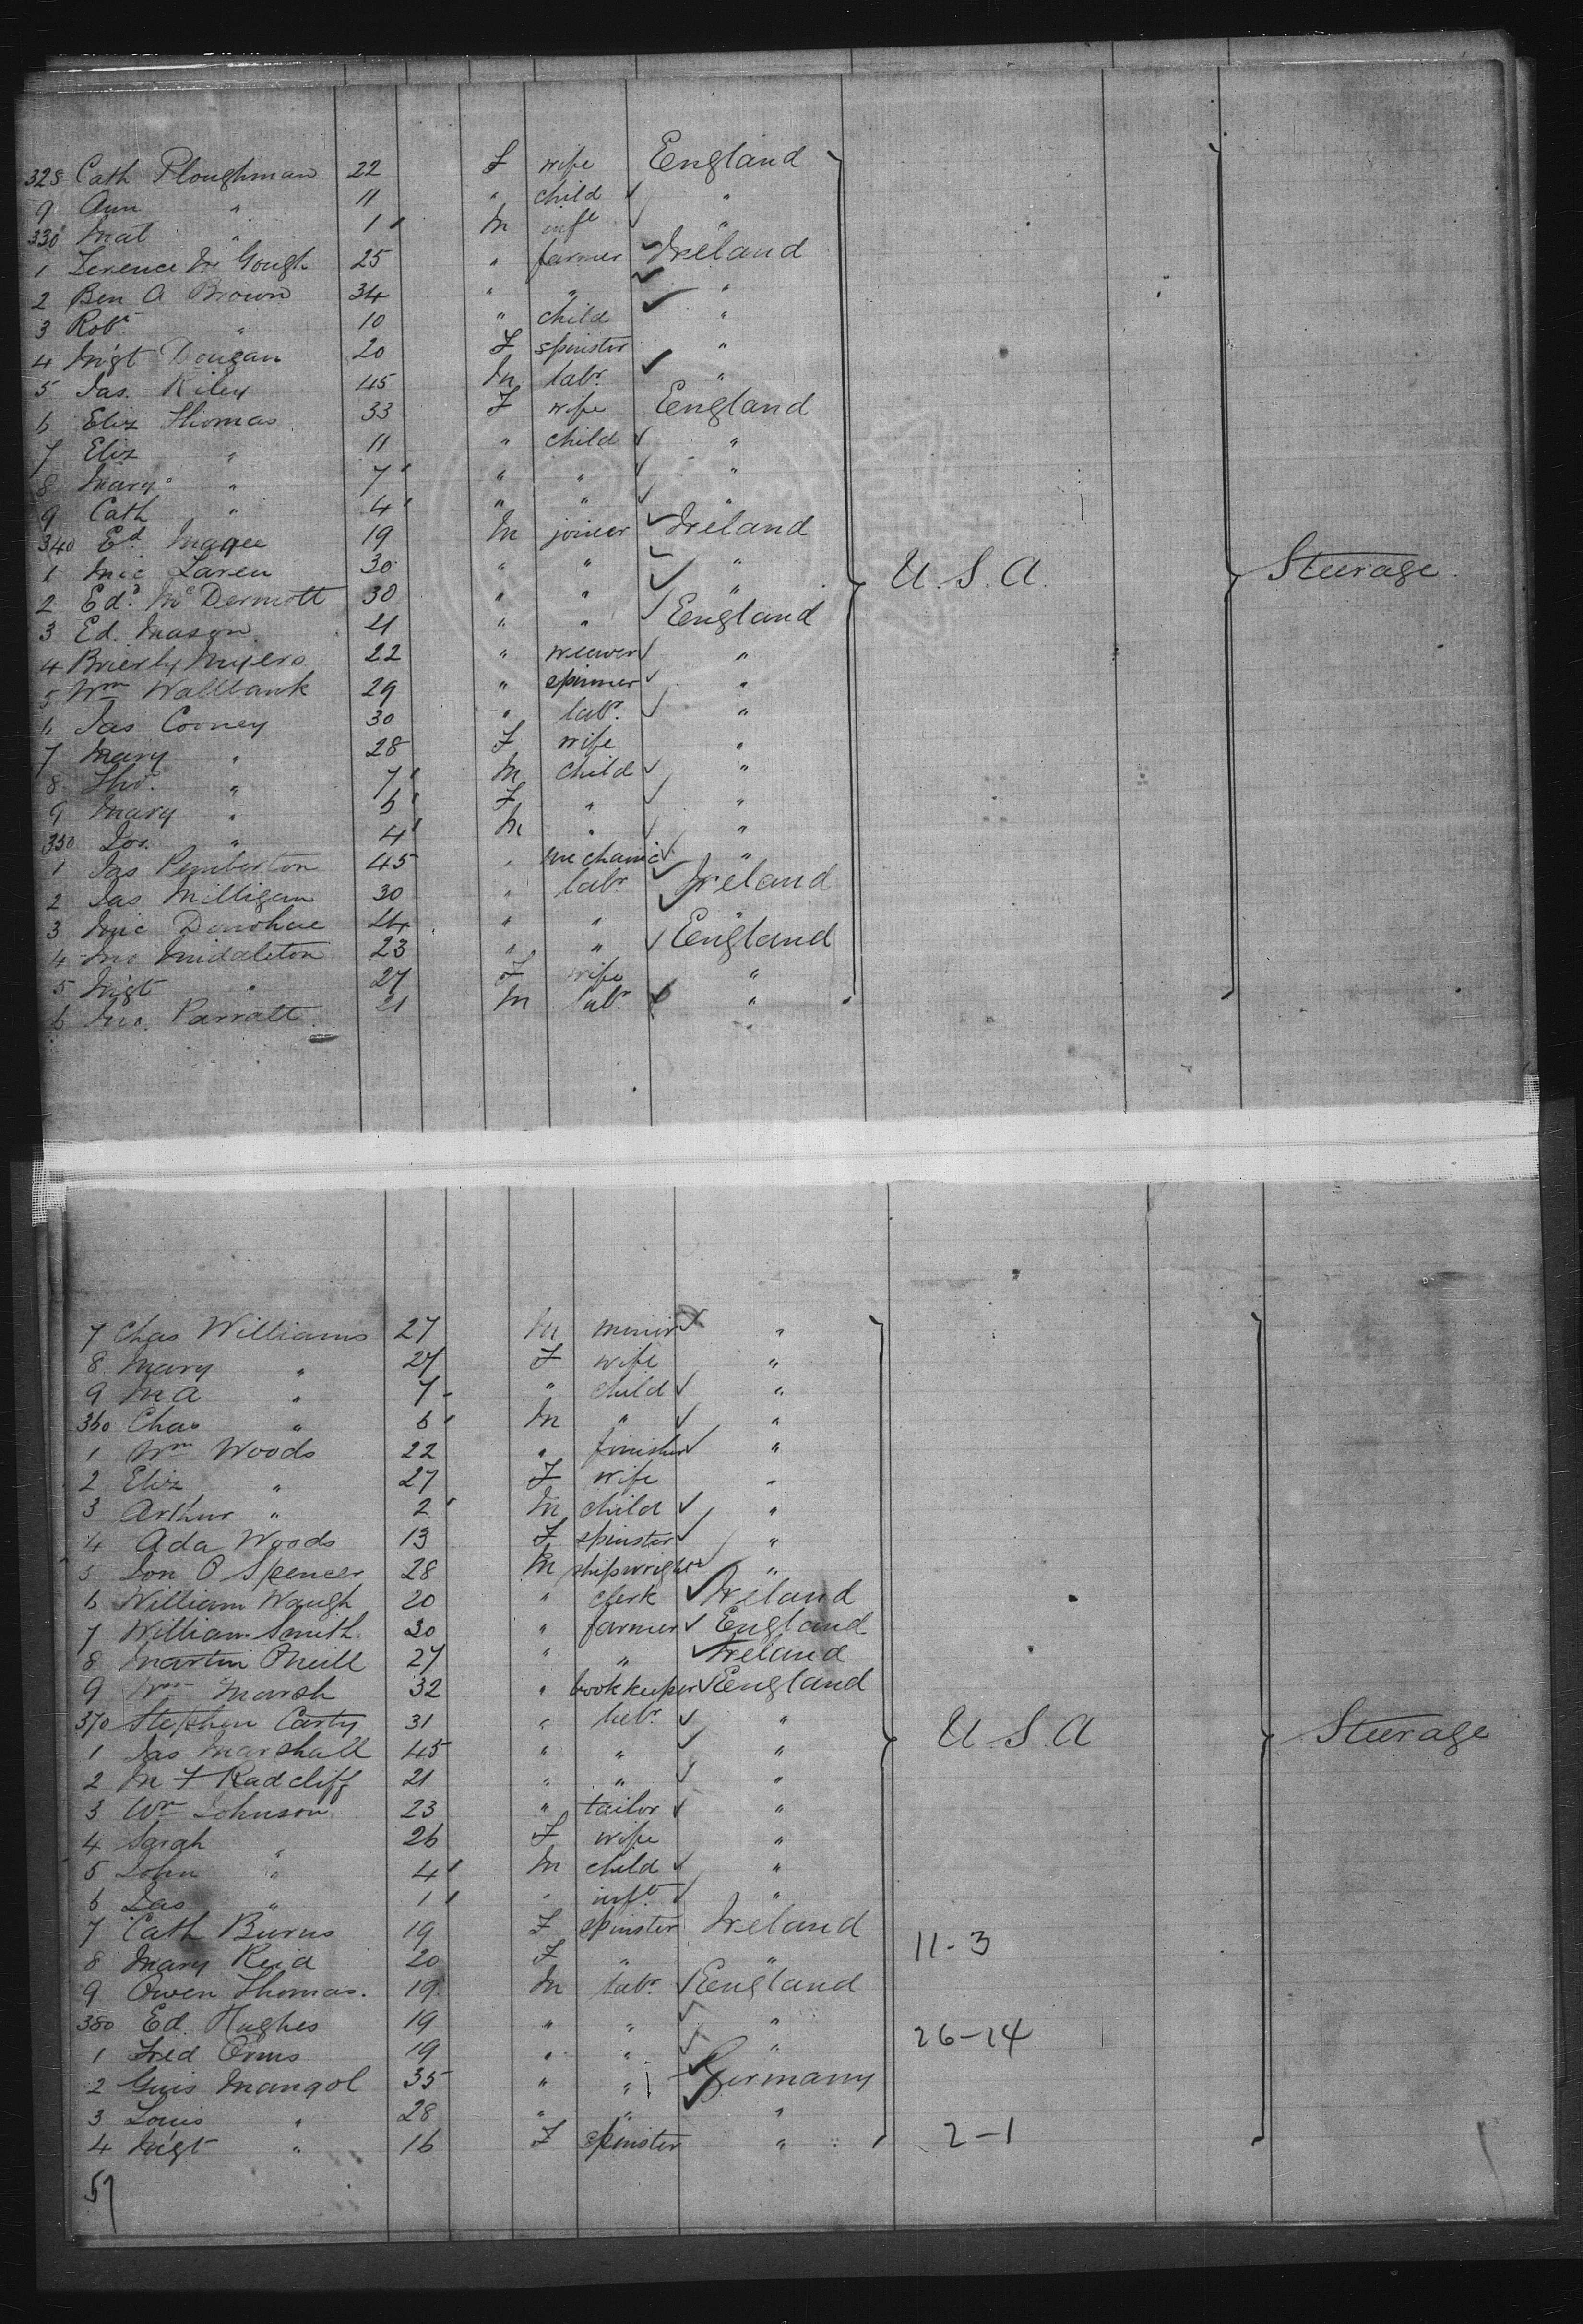 328 Cath Ploughman 22 F wife England
9 Ann " 11 " child "
330 Mat " 1 M inft "
1 Terence Mc Gough 25 " farmer Ireland
2 Ben A Brown 34 " " "
3 Robt " 10 " child "
4 Mgt Dougan 20 F spinster "
5 Jas. Riley 45 M labr. "
6 Eliz Thomas 33 F wife England
7 Eliz " 11 " child "
8 Mary " 7 " " "
9 Cath " 4 " " "
340 Ed. Magee 19 M joiner Ireland
1 Mic Laren 30 " " " U.S.A. Steerage
2 Edd. McDermott 30 " " "
3 Ed. Mason 21 " " England
4 Brierly Myers 22 " weaver "
5 Wm Wallbank 29 " spinner "
6 Jas Cooney 30 " labr. "
7 Mary " 28 F wife "
8 Tho. " 7 M child "
9 Mary " 6 F " "
350 Jos. " 4 M " "
1 Jas Pemberton 45 " mechanic "
2 Jas Milligan 30 " labr Ireland
3 Mic Donohue 24 " " "
4 Jno Middleton 23 " " England
5 Mgt " 27 F wife "
6 Jno. Parratt 21 M labr "
7 Chas Williams 27 M minir "
8 Mary " 27 F wife "
9 M A " 7 " child "
360 Chas " 6 M " "
1 Wm Woods 22 " finisher "
2 Eliz " 27 F wife "
3 Arthur " 2 M child "
4 Ada Woods 13 F spinster "
5 Jon O Spencer 28 M shipwright "
6 William Waugh 20 " clerk Ireland
7 William Smith 20 " farmer England
8 Martin Oneill 27 " " Ireland
9 Wm Marsh 32 " bookkeeper England
370 Stephen Carty 31 " labr. "
1 Jas Marshall 45 " " " U.S.A Steerage
2 M F Radcliff 21 " " "
3 Wm Johnson 23 " tailor "
4 Sarah " 26 F wife "
5 John " 4 M child "
6 Jas " 1 " inft "
7 Cath Burns 19 F spinster Ireland 11-3
8 Mary Reid 20 F " "
9 Owen Thomas. 19 M labr. England
380 Ed. Hughes 19 " " " 26-24
1 Fred Orms 19 " " "
2 Guis Mangol 35 " " Germany
3 Louis " 28 " " "
4 Mgt " 16 F spinster " 2-1
57